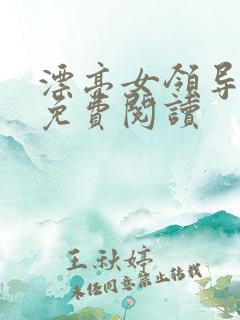 漂亮女領导
免費閱讀
王秋婷
未经同意禁止转载